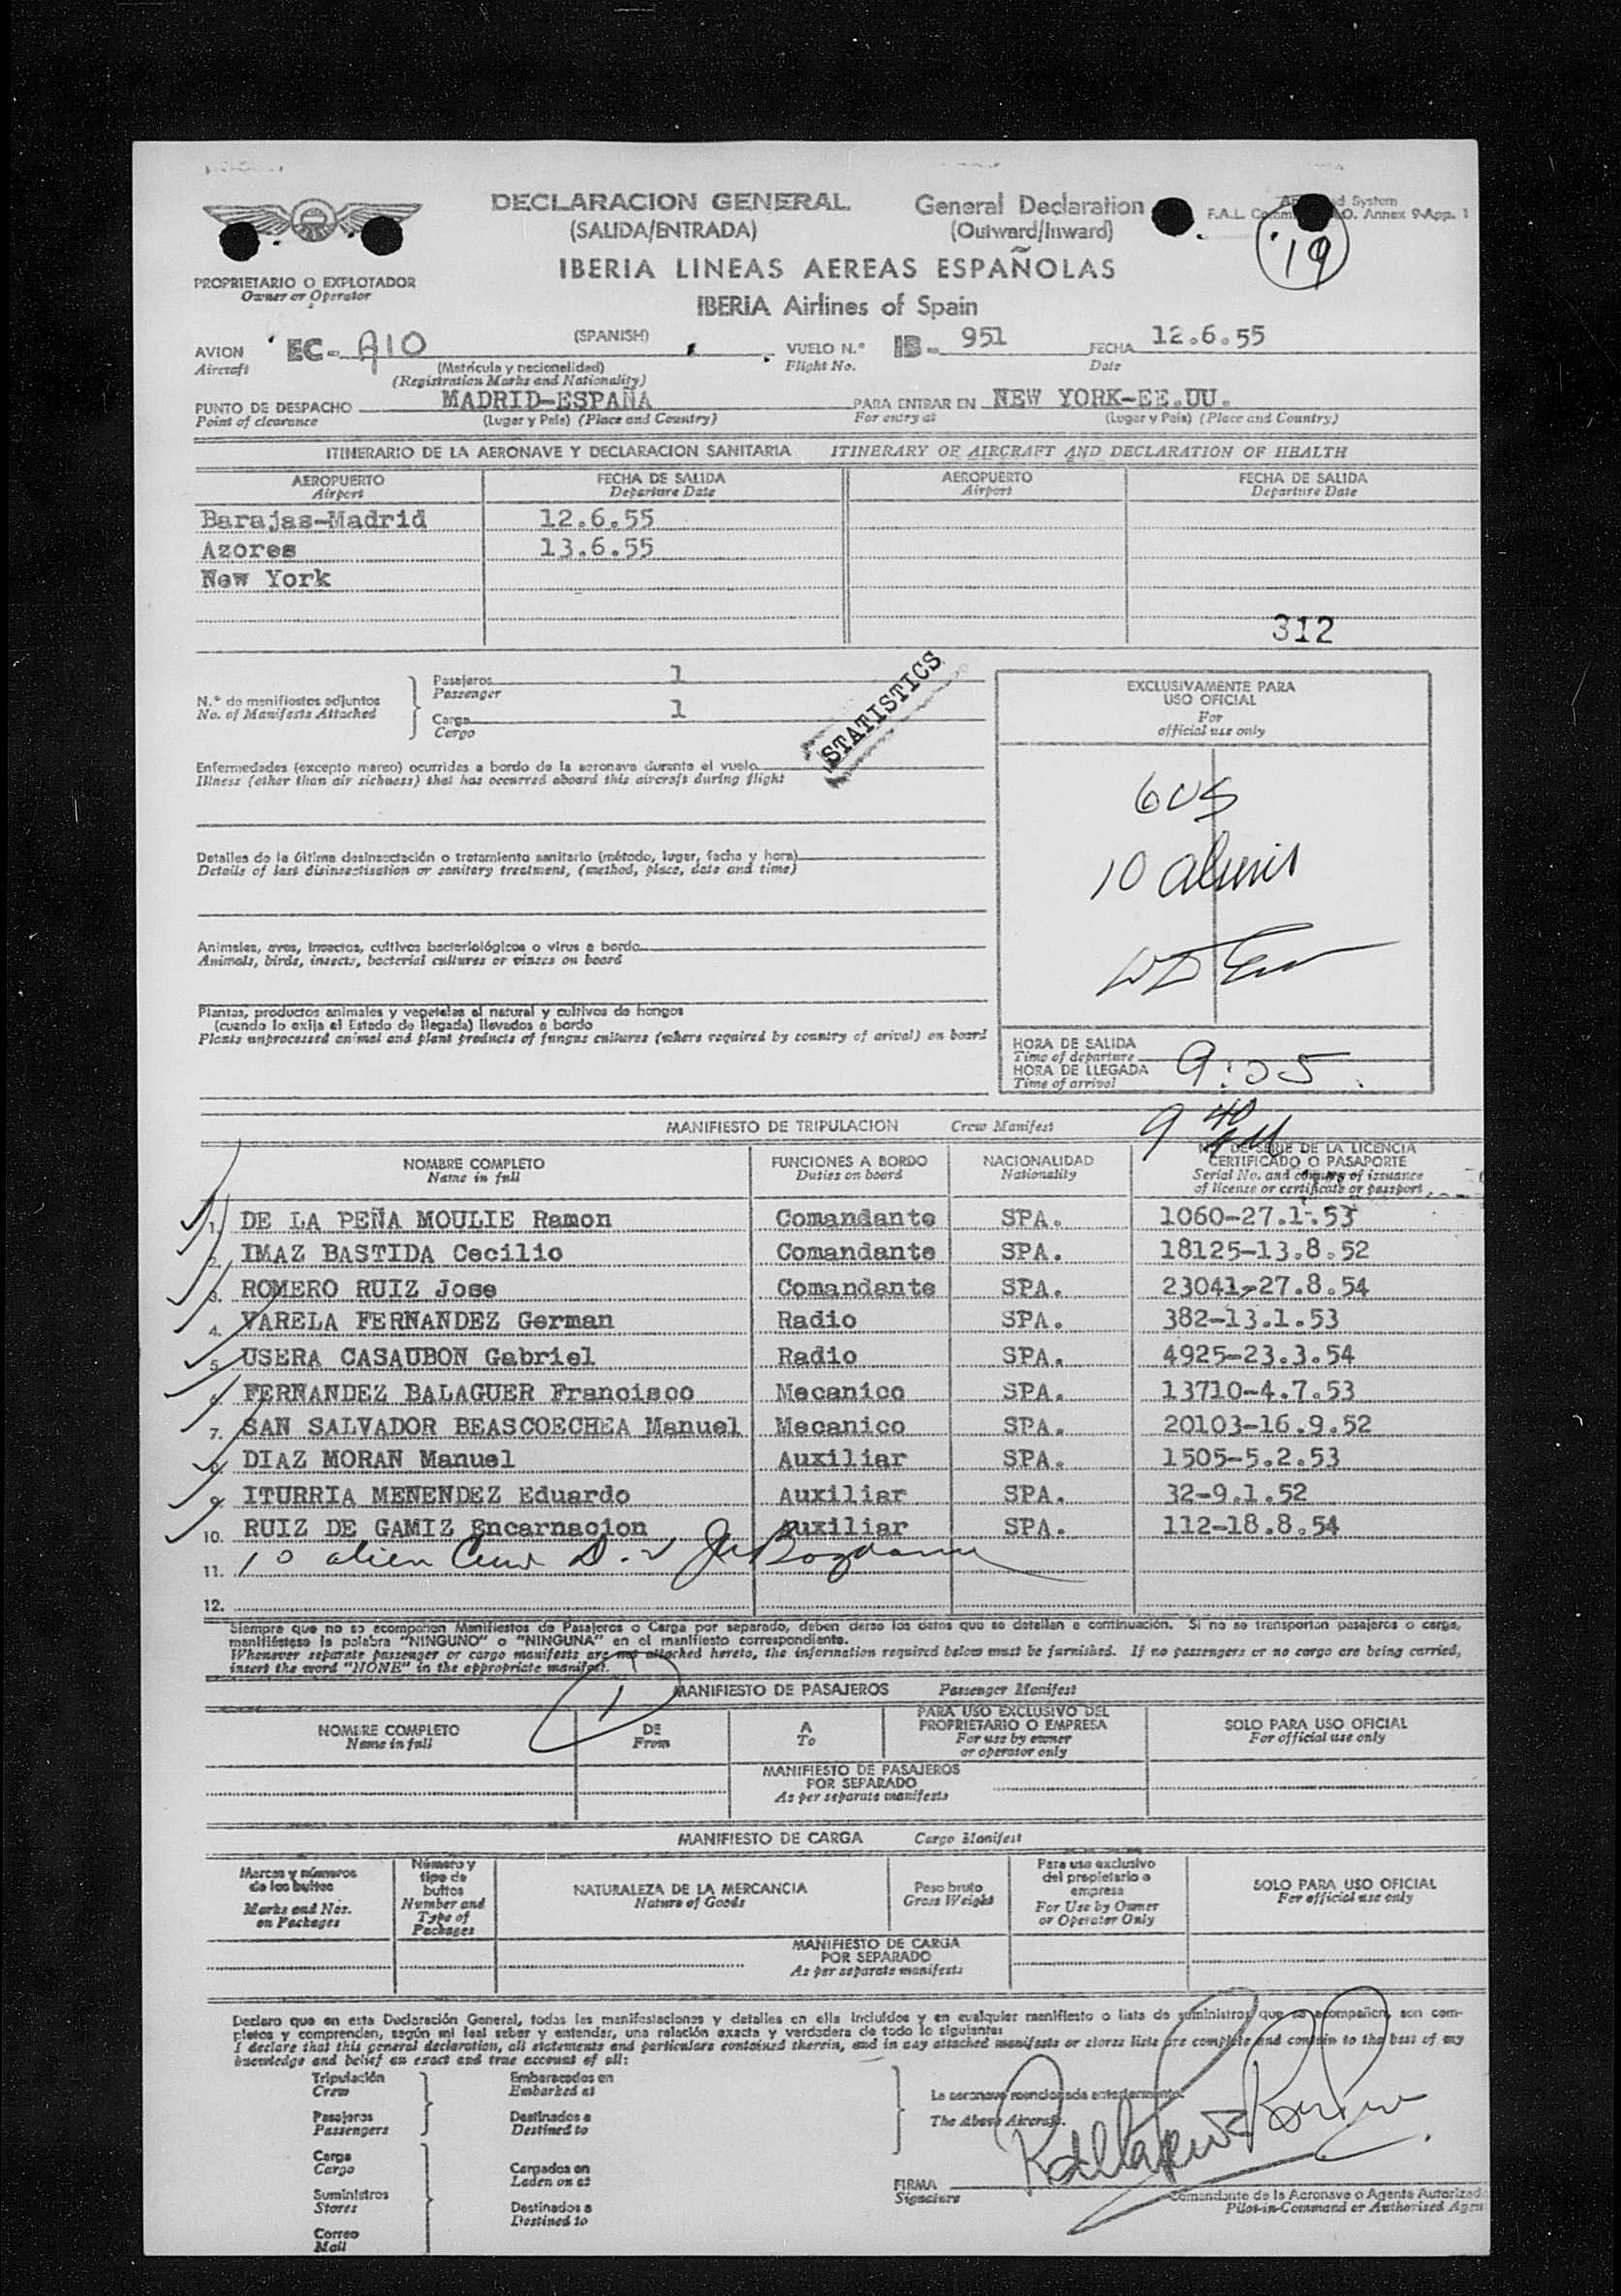 DECLARACION GENERAL
(SALIDA/ENTRADA)
General Declaration
(Outward/Inward)
System
F.A.L. O. Annex 9-App. 1
19
IBERIA LINEAS AEREAS ESPAÑOLAS
IBERIA Airlines of Spain
PROPRIETARIO O EXPLOTADOR
Owner or Operator
AVION EC- AIO (SPANISH) VUELO N.° IB- 951 FECHA 12.6.55
Aircraft (Matrícula y nacionalidad) Flight No. Date
(Registration Marks and Nationality)
PUNTO DE DESPACHO MADRID-ESPAÑA PARA ENTRAR EN NEW YORK-EE.UU.
Point of clearance (Lugar y País) (Place and Country) For entry at (Lugar y País) (Place and Country)
ITINERARIO DE LA AERONAVE Y DECLARACION SANITARIA ITINERARY OF AIRCRAFT AND DECLARATION OF HEALTH
AEROPUERTO FECHA DE SALIDA AEROPUERTO FECHA DE SALIDA
Airport Departure Date Airport Departure Date
Barajas-Madrid 12.6.55
Azores 13.6.55
New York
312
N.° de manifiestos adjuntos
No. of Manifests Attached
Pasajeros 1
Passenger
Carga 1
Cargo
STATISTICS
EXCLUSIVAMENTE PARA
USO OFICIAL
For
official use only
6 US
10 aliens
Enfermedades (excepto mareo) ocurridas a bordo de la aeronave durante el vuelo
Illness (other than air sickness) that has occurred aboard this aircraft during flight
Detalles de la última desinsectación o tratamiento sanitario (método, lugar, fecha y hora)
Details of last disinsectisation or sanitary treatment, (method, place, date and time)
Animales, aves, insectos, cultivos bacteriológicos o virus a bordo
Animals, birds, insects, bacterial cultures or viruses on board
Plantas, productos animales y vegetales al natural y cultivos de hongos
(cuando lo exija el Estado de llegada) llevados a bordo
Plants unprocessed animal and plant products of fungus cultures (where required by country of arival) on board
HORA DE SALIDA
Time of departure
HORA DE LLEGADA
Time of arrival
9:05
9 40
MANIFIESTO DE TRIPULACION Crew Manifest
NOMBRE COMPLETO FUNCIONES A BORDO NACIONALIDAD N.° DE SERIE DE LA LICENCIA
Name in full Duties on board Nationality CERTIFICADO O PASAPORTE
Serial No. and country of issuance
of license or certificate or passport
1. DE LA PEÑA MOULIE Ramon Comandante SPA. 1060-27.1.53
2. IMAZ BASTIDA Cecilio Comandante SPA. 18125-13.8.52
3. ROMERO RUIZ Jose Comandante SPA. 23041-27.8.54
4. VARELA FERNANDEZ German Radio SPA. 382-13.1.53
5. USERA CASAUBON Gabriel Radio SPA. 4925-23.3.54
6. FERNANDEZ BALAGUER Francisco Mecanico SPA. 13710-4.7.53
7. SAN SALVADOR BEASCOECHEA Manuel Mecanico SPA. 20103-16.9.52
8. DIAZ MORAN Manuel Auxiliar SPA. 1505-5.2.53
9. ITURRIA MENENDEZ Eduardo Auxiliar SPA. 32-9.1.52
10. RUIZ DE GAMIZ Encarnacion Auxiliar SPA. 112-18.8.54
11. 10 alien Crew
12.
Siempre que no se acompañen Manifiestos de Pasajeros o Carga por separado, deben darse los datos que se detallan a continuación. Si no se transportan pasajeros o carga,
manifiéstese la palabra "NINGUNO" o "NINGUNA" en el manifiesto correspondiente.
Whenever separate passenger or cargo manifests are not attached hereto, the information required below must be furnished. If no passengers or no cargo are being carried,
insert the word "NONE" in the appropriate manifest.
1
MANIFIESTO DE PASAJEROS Passenger Manifest
NOMBRE COMPLETO DE A PARA USO EXCLUSIVO DEL PROPRIETARIO O EMPRESA SOLO PARA USO OFICIAL
Name in full From To For use by owner or operator only For official use only
MANIFIESTO DE PASAJEROS
POR SEPARADO
As per separate manifests
MANIFIESTO DE CARGA Cargo Manifest
Marcas y números de los bultos
Marks and Nos. on Packages
Número y tipo de bultos
Number and Type of Packages
NATURALEZA DE LA MERCANCIA
Nature of Goods
Peso bruto
Gross Weight
Para uso exclusivo del propietario o empresa
For Use by Owner or Operator Only
SOLO PARA USO OFICIAL
For official use only
MANIFIESTO DE CARGA
POR SEPARADO
As per separate manifests
Declaro que en esta Declaración General, todas las manifestaciones y detalles en ella incluídos y en cualquier manifiesto o lista de suministros que se acompañen, son com-
pletos y comprenden, según mi leal saber y entender, una relación exacta y verdadera de todo lo siguiente:
I declare that this general declaration, all statements and particulars contained therein, and in any attached manifests or stores lists are complete and contain to the best of my
knowledge and belief an exact and true account of all:
Tripulación Embarcados en
Crew Embarked at
Pasajeros Destinados a
Passengers Destined to
La aeronave mencionada anteriormente.
The Above Aircraft.
Carga Cargados en
Cargo Laden on at
Suministros Destinados a
Stores Destined to
Correo
Mail
FIRMA
Signature
Comandante de la Aeronave o Agente Autorizado
Pilot-in-Command or Authorised Agen